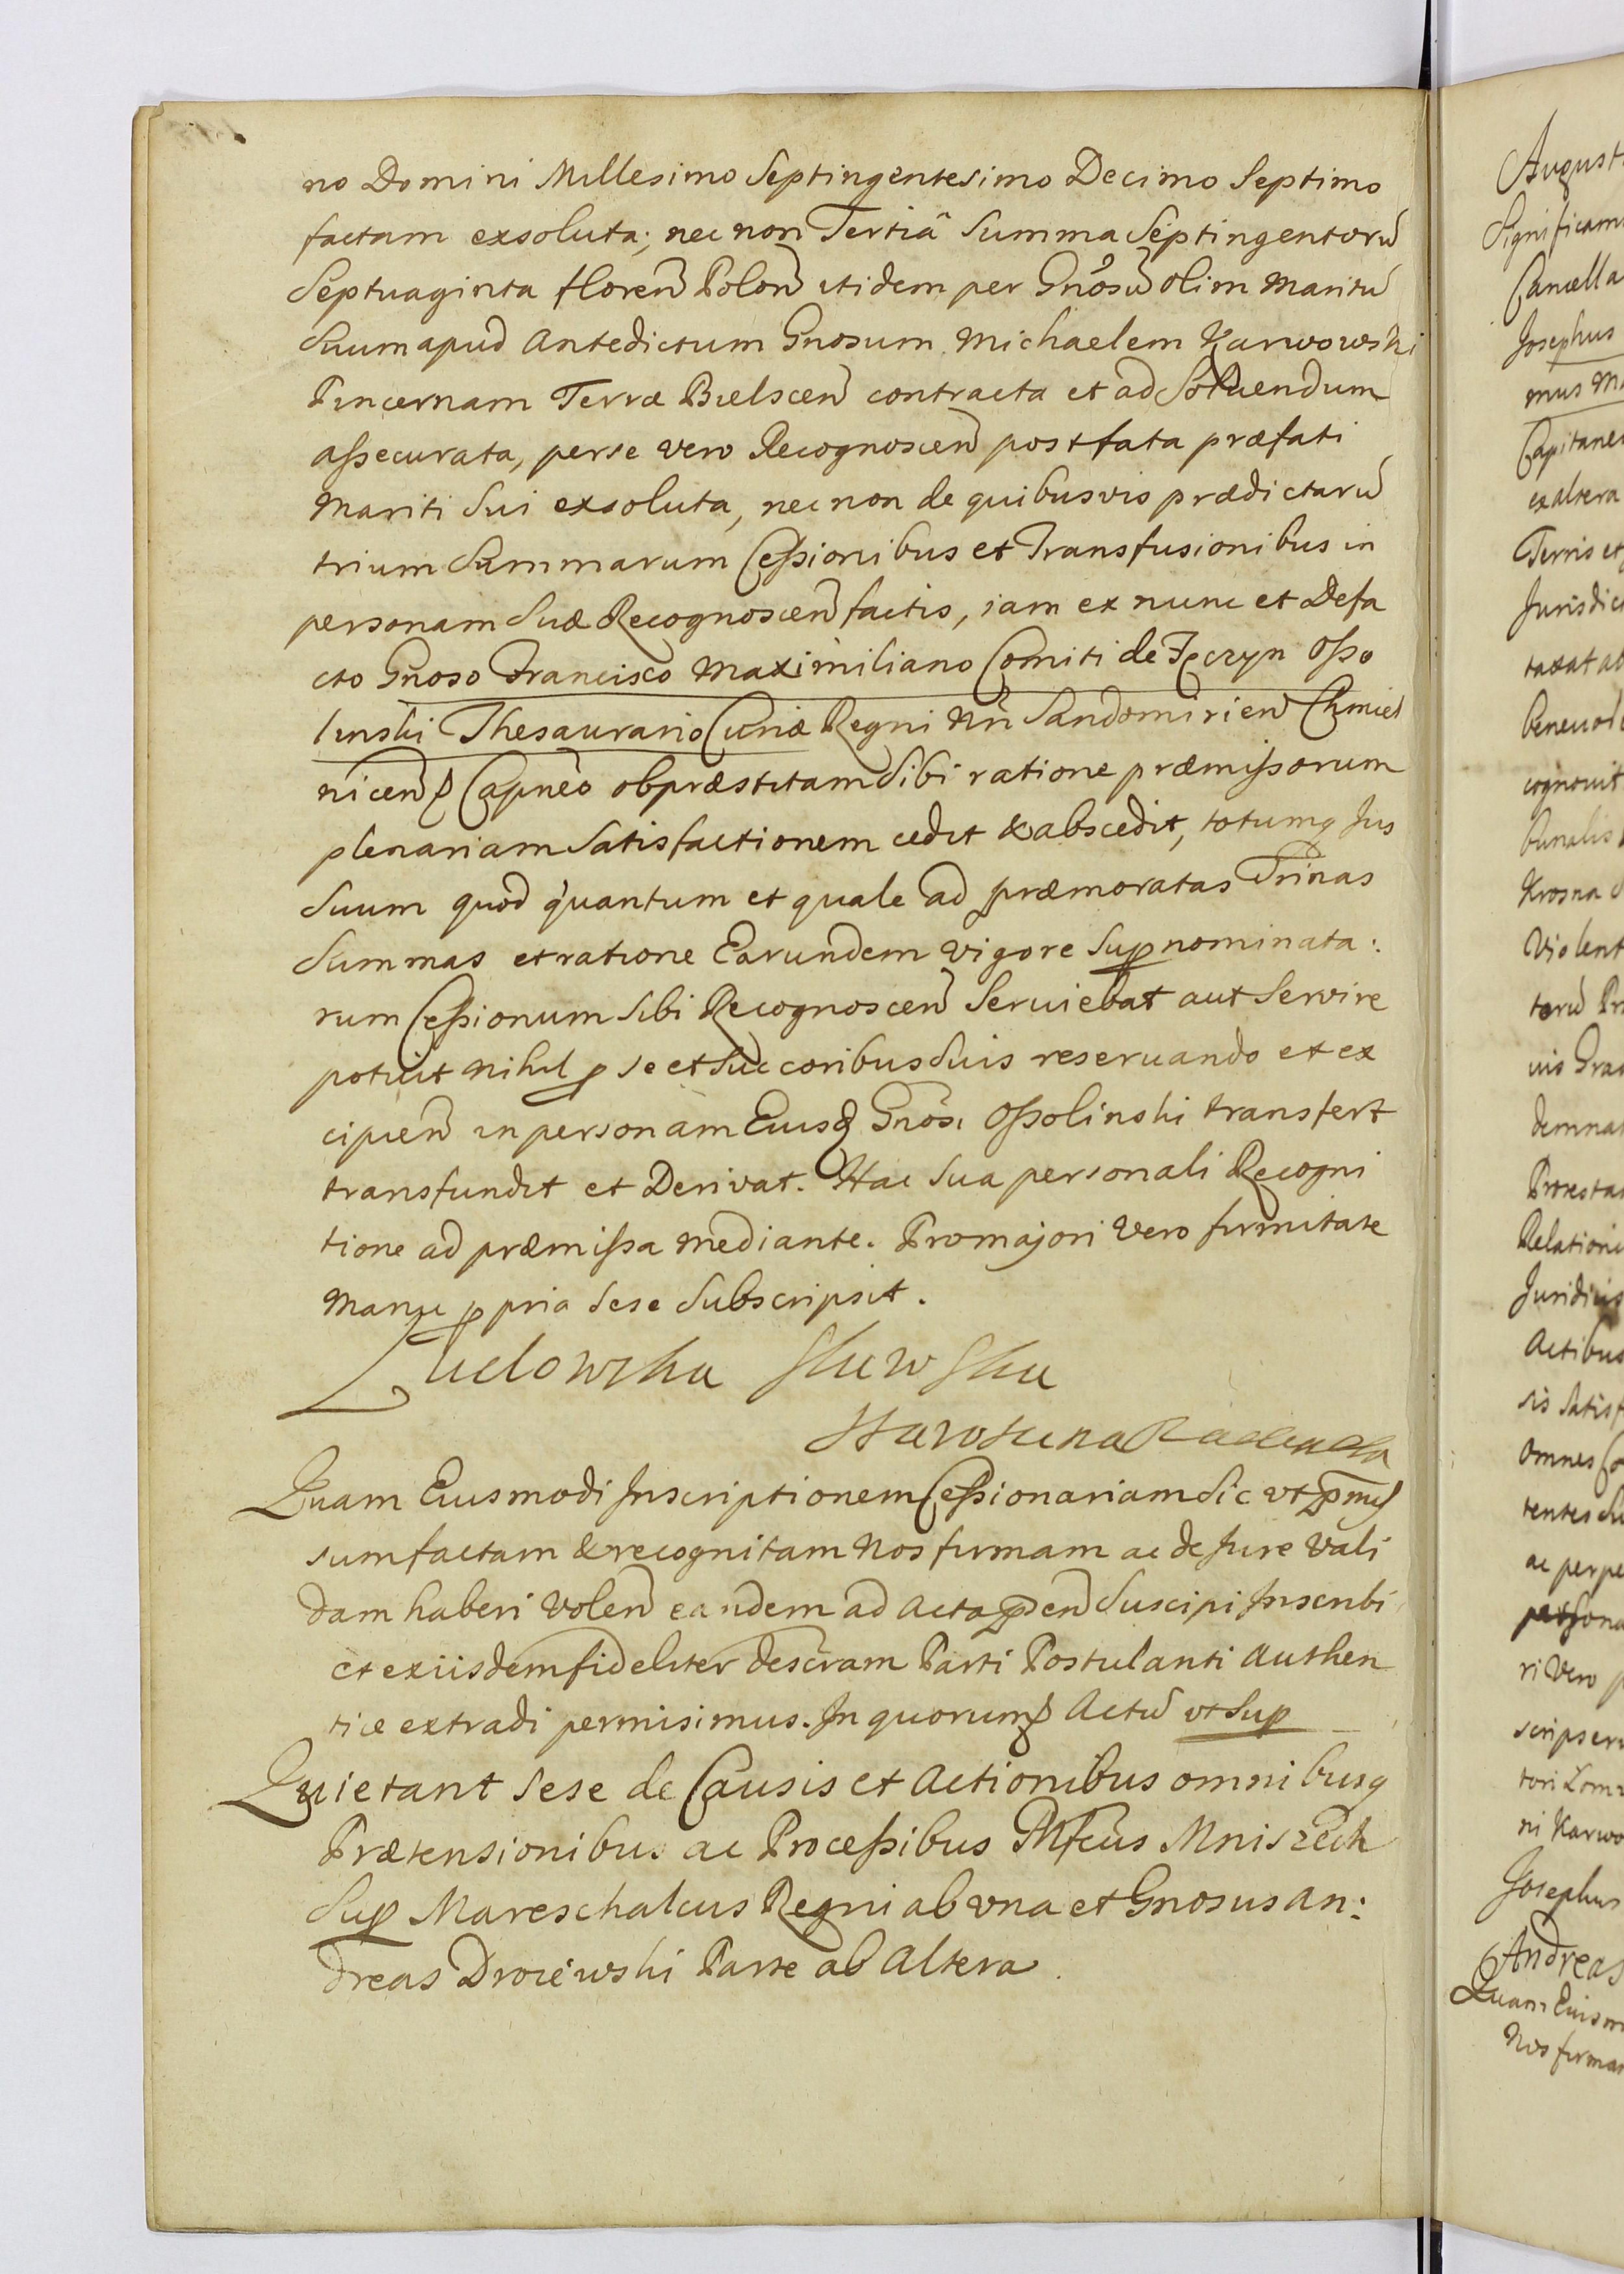 no Domini Millesimo Septingentesimo Decimo Septimo
factam exsoluta; nec non Tertiâ Summa Septingentorū
Septuaginta floreñ Poloñ itidem per Gnōsū olim Maritū
Suum apud Antedictum Gnosum Michaelem Karwowski
Pincernam Terræ Bielsceñ contracta et ad Soluendum
aſsecurata, per se vero Recognosceñ post fata præfati
Mariti Sui exsoluta, nec non de quibusvis prædictarū
trium Summarum Ceſsionibus et Transfusionibus in
personam Suæ Recognosceñ factis, iam ex nunc et Defa
cto Gnoso Francisco Maximiliano Comiti de Tęczyn Oſso
linski Thesaurario Curiæ Regni Nrī Sandomirieñ Chmiel
niceñq Capneo ob præstitam Sibi ratione præmiſsorum
plenariam Satisfactionem cedit & abscedit, totumq Jus
Suum quod quantum et quale ad præmoratas Trinas
Summas et ratione Earundem vigore Sup nominata:
rum Ceſsionum Sibi Recognosceñ Serviebat aut Servire
potuit nihil p se et Succoribus Suis reseruando et ex
cipieñ in personam Eiusd Gnosi Oſsolinski transfert
transfundit et Derivat. Hac Sua personali Recogni
tione ad præmiſsa mediante. Pro majori vero firmitate
Manu ppria Sese Subscripsit.
Starostina
Quam Eiusmodi Inscriptionem Ceſsionariam Sic vt pmiſ
sum factam & recognitam Nos firmam ac de Jure Vali
dam haberi Voleñ eandem ad Acta pñ Suscipi Inscribi
et ex iisdem fideliter descram Parti Postulanti Authen
tice extradi permisimus. In quorum Actū vt Sup
Quietant Sese de Causis et Actionibus omnibusq
Prætensionibus ac Proceſsibus Mfcus Mniszech
Sup Mareschalcus Regni ab vna et Gnosus An:
dreas Drozewski Parte ab Altera
August
Significam
Cancella
Josephus
mus M
Capitane
ex altera
Terris et
Jurisdic
taxat ab
beneuol
cognouit
bunalis
Krosna
Violent
torū Pr
uis Gra
demnat
Protesta
Relatione
Juridicis
Actibus
sis Satisf
Omnes Co
tentes Su
ac perpe
persona
ri Vero p
scripser
tori Lom
ni Karwo
Josephus
Andreas
Quam Eiusm
Nos firmam